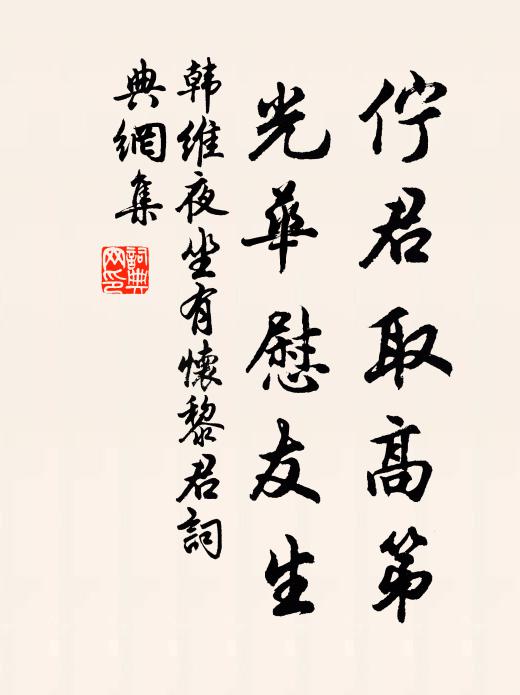 佇君取高第
光華慰友生
韩維夜坐有懷黎君詞
典網集
詞典
网印